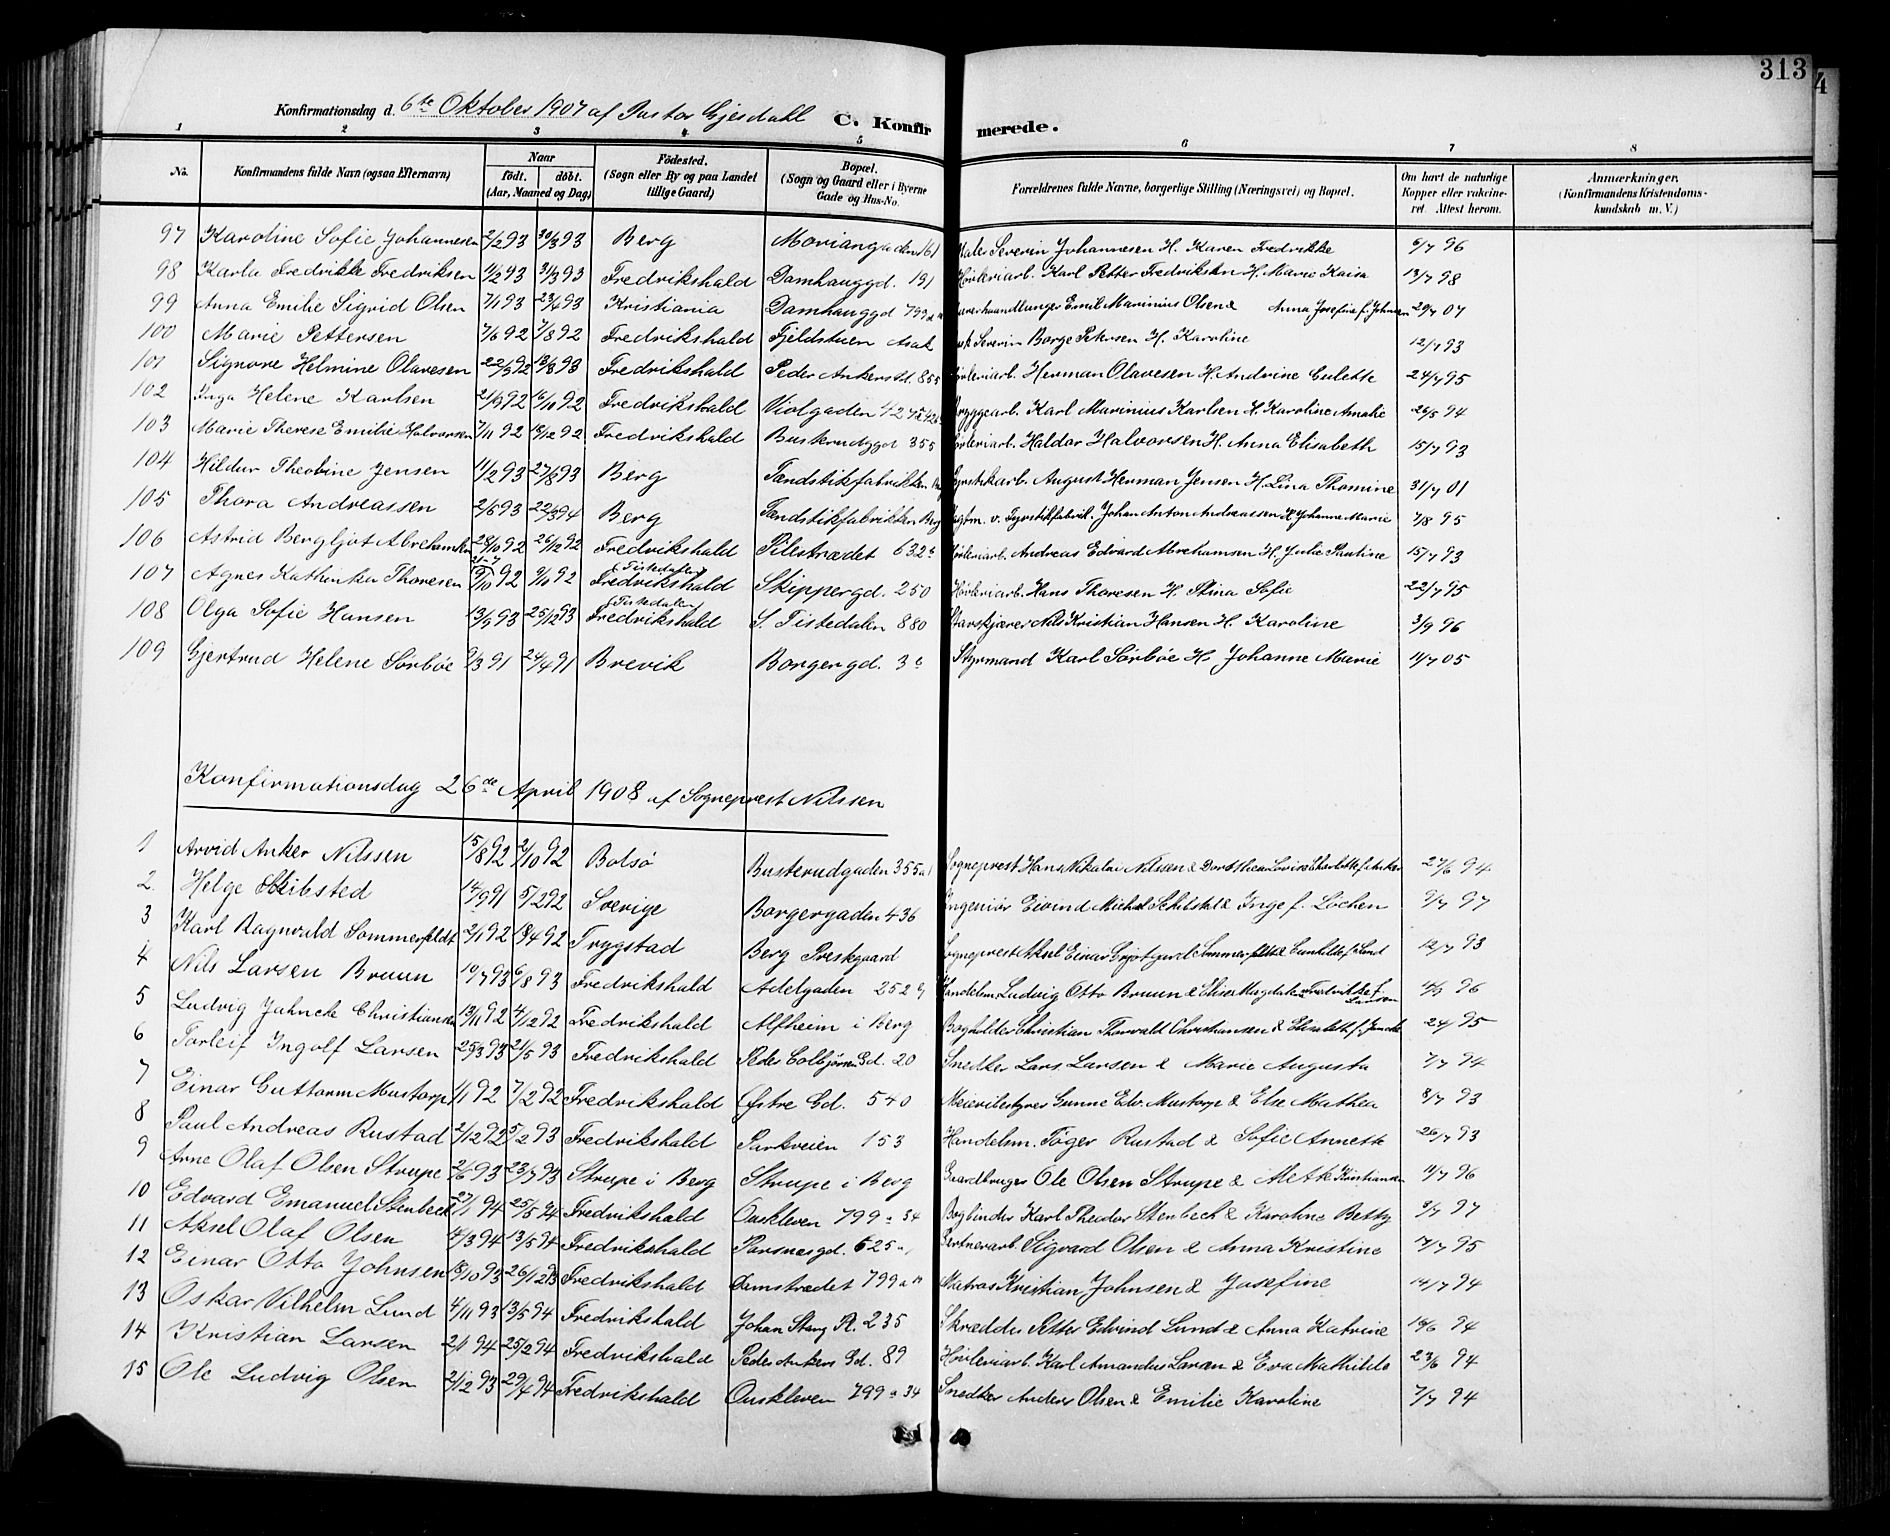 313
4
Konfirmationsdag d. 6te Oktober 1907 af Pastor Gjesdahl C. Konfirmerede.
1 2 3 4 5 6 7 8
No. Konfirmandens fulde Navn (ogsaa Efternavn) Naar født. døbt. (Aar, Maaned og Dag) Födested. (Sogn eller By og paa Landet tillige Gaard) Bopæl. (Sogn og Gaard eller i Byerne Gade og Hus-No. Forældrenes fulde Navne, borgerlige Stilling (Næringsvei) og Bopæl. Om havt de naturlige Kopper eller vakcineret. Attest herom. Anmærkninger. (Konfirmandens Kristendomskundskab m. V.)
97 Karoline Sofie Johannesen 2/2 93 30/3 93 Berg Moriangaden 161 Severin Johannesen H. Karen Fredrikke 5/7 96
98 Karla Fredrikke Fredriksen 11/2 93 31/3 93 Fredrikshald Damhauggd. 191 Høvleriarb. Karl Petter Fredriksen H. Marie Kaisa 13/7 98
99 Anna Emilie Sigrid Olsen 7/1 93 23/4 93 Kristiania Damhauggd 799 Emil Marinius Olsen & Anna Josefine f. Johnsen 29/7 07
100 Marie Pettersen 7/6 92 7/8 92 Fredrikshald Fjeldstuen Asak Severin Borge Petersen H. Karoline 12/7 93
101 Signore Helmine Olavesen 22/9 92 13/8 93 Fredrikshald Peder Ankers Gd. 855 Høvleriarb. Herman Olavesen H. Andrine Gulette 24/7 95
102 Inga Helene Karlsen 21/9 92 16/10 92 Fredrikshald Violgaden Bryggearb. Karl Marinius Karlsen H. Karoline Amalie 26/5 94
103 Marie Therese Emilie Halvorsen 7/11 92 18/12 92 Fredrikshald Buskrudgd 355 Høvleriarb. Haldor Halvorsen H. Anna Elisabeth 15/7 93
104 Hildur Theobine Jensen 11/2 93 27/8 93 Berg Tændstikfabrikken Berg Fyrstikarb. August Herman Jensen H. Lina Thomine 31/7 01
105 Thora Andreassen 2/6 93 22/3 94 Berg Tændstikfabrikken Berg v. Fyrstikfabrik. Johan Anton Andreassen H. Johanne Marie 7/8 95
106 Astrid Bergljot Abrehamsen 28/10 92 26/12 92 Fredrikshald Pilestrædet 632 b Høvleriarb. Andreas Edvard Abrehamsen H. Julie Pauline 15/7 93
107 Agnes Kathinka Thoresen 9/10 92 Fredrikshald (Tistedalen) Skippergd. 250 Høvleriarb. Hans Thoresen H. Stina Sofie 22/7 95
108 Olga Sofie Hansen 13/9 93 25/12 93 Fredrikshald (Tistedalen) S. Tistedalen 880 Stavskjærer Nils Kristian Hansen H. Karoline 3/9 96
109 Gjertrud Helene Sørbøe 9/3 91 24/4 91 Brevik Borgergd. 3 b Styrmand Karl Sørbøe H. Johanne Marie 11/7 05
Konfirmationsdag 26de April 1908 af Sogneprest Nilssen
1 Arvid Anker Nilssen 15/8 92 2/10 92 Bolsø Busterudgaden 355 Sogneprest Hans Nikolai Nilssen & Dorothea Lovise Charlotte f. Anker 27/6 94
2. Helge Skibsted 14/9 91 5/2 92 Sverige Borgergaden 436 Ingeniør Eivind Michael Schibsted & Inge f. Lochen 9/7 97
3 Karl Ragnvald Sommerfeldt 2/1 92 18/4 92 Trygstad Berg Prestegaard Sogneprest Aksel Einar Grjotgard Sommerfeldt & Gunhilde f. Lund 12/7 93
4 Nils Larsen Bruun 10/7 93 6/8 93 Fredrikshald Adelgaden 252 g Handelsm. Ludvig Otto Bruun & Elise Magdalene Fredrikke f. Larsen 4/9 96
5 Ludvig Jahncke Christiansen 13/11 92 4/12 92 Fredrikshald Alfheim i Berg Bogholder Christian Thorvald Christiansen & Elisabeth f. Jancke 24/7 95
6 Torleif Ingolf Larsen 25/3 93 21/5 93 Fredrikshald Peder Colbjørns Gd. 20 Snedker Lars Larsen & Marie Augusta 7/7 94
7 Einar Guttorm Mustorp 1/1 92 7/2 92 Fredrikshald Østre Gd. 540 Meieribestyrer Gunne Edv. Mustorp & Else Mathea 8/7 93
8 Paul Andreas Rustad 2/12 92 5/2 93 Fredrikshald Parkveien 153 Handelsm. Tøger Rustad & Sofie Annette 26/7 93
9 Arne Olaf Olsen Strupe 2/6 93 23/7 93 Strupe i Berg Strupe i Berg Gaardbruger Ole Olsen Strupe & Mete Kristiansen 11/7 96
10 Edvard Emanuel Stenbeck 27/1 94 25/5 94 Fredrikshald Ouskleven 799 a 34 Bogbinder Karl Theodor Stenbeck & Karoline Betty 3/7 97
11 Aksel Olaf Olsen 14/3 94 13/5 94 Fredrikshald Parsnesgd. 525 a Gartnerarb. Sigvard Olsen & Anna Kristine 17/7 95
12 Einar Otto Johnsen 18/10 93 26/12 93 Fredrikshald Damstrædet 799 a Matros Kristian Johnsen & Josefine 14/7 94
13 Oskar Vilhelm Lund 4/11 93 13/5 94 Fredrikshald Johan Stang Pl. 235 Skrædder Petter Edvind Lund & Anna Katrine 16/6 94
14 Kristian Larsen 2/1 94 25/2 94 Fredrikshald Peder Ankers Gd. 89 Høvleriarb. Karl Amandus Larsen & Eva Mathilde 23/6 94
15 Ole Ludvig Olsen 2/12 93 29/4 94 Fredrikshald Ouskleven 799 a 34 Snedker Anders Olsen & Emilie Karoline 7/7 94